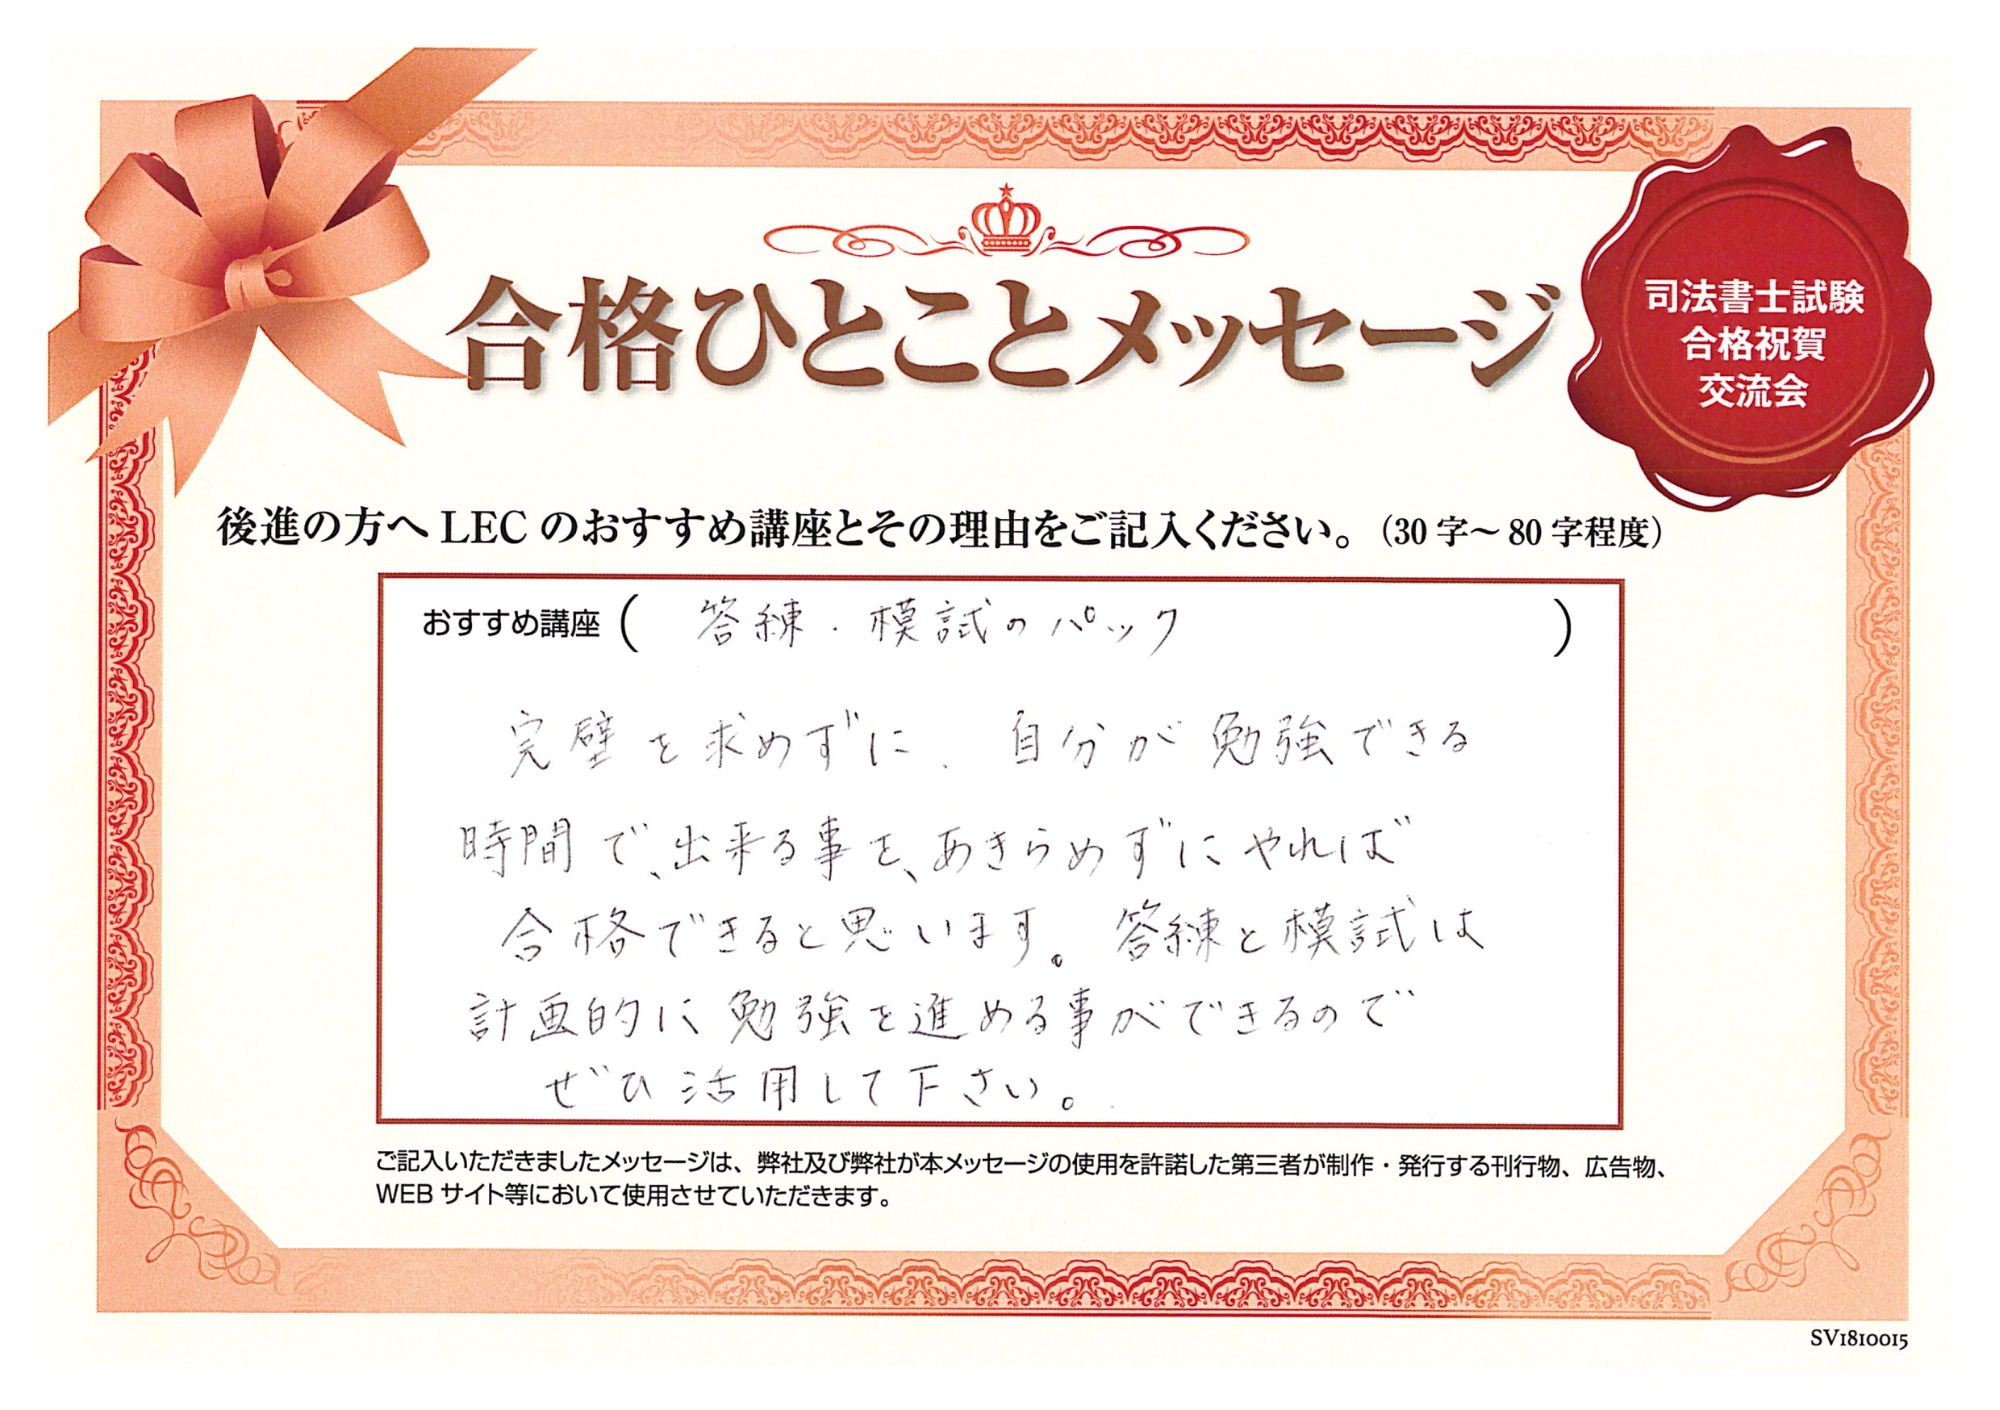 合格ひとことメッセージ
司法書士試験
合格祝賀
交流会
後進の方へ LEC のおすすめ講座とその理由をご記入ください。（30 字～ 80 字程度）
おすすめ講座 ( 答練・模試のパック )
完璧を求めずに、自分が勉強できる
時間で、出来る事を、あきらめずにやれば
合格できると思います。答練と模試は
計画的に勉強を進める事ができるので
ぜひ活用して下さい。
ご記入いただきましたメッセージは、弊社及び弊社が本メッセージの使用を許諾した第三者が制作・発行する刊行物、広告物、
WEB サイト等において使用させていただきます。
SV1810015